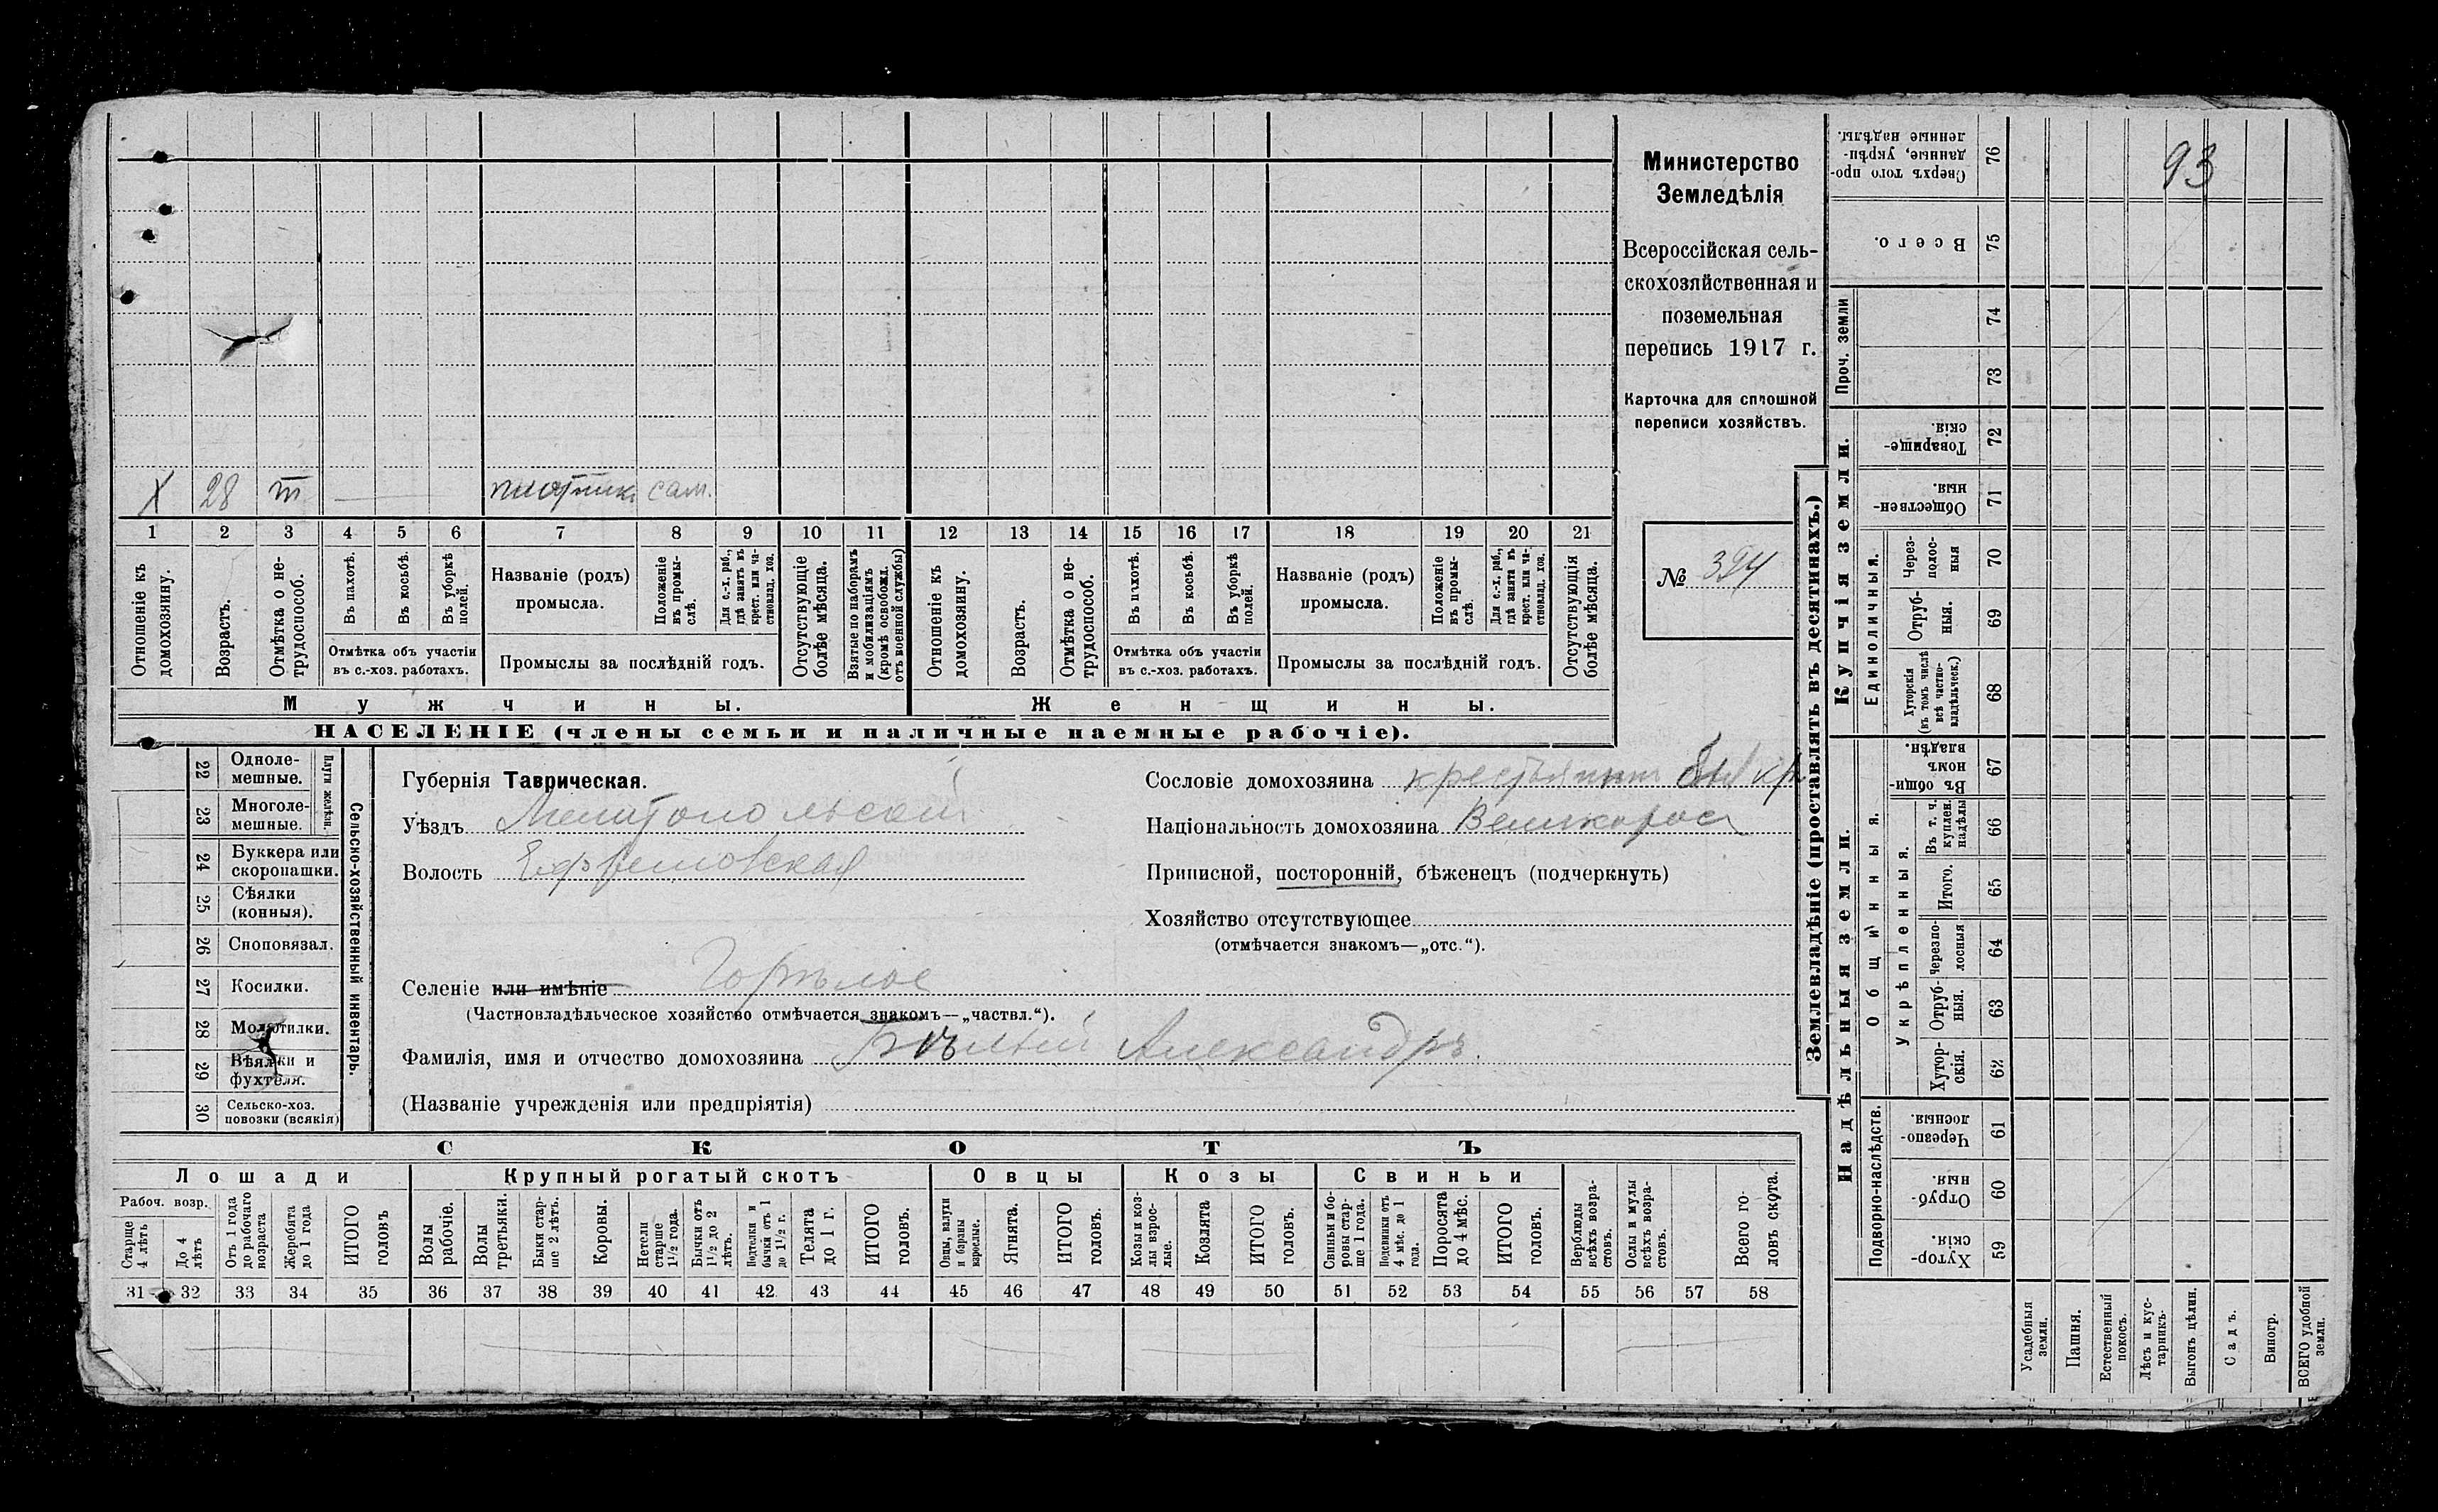 93
Министерство
Земледѣлія
Всероссійская сель-
скохозяйственная и
поземельная
перепись 1917 г.
Карточка для сплошной
переписи хозяйствъ.
№
X 28 т плотник сам.
1 2 3 4 5 6 7 8 9 10 11 12 13 14 15 16 17 18 19 20 21
Отношеніе къ домохозяину.
Возрастъ.
Отмѣтка о не-трудоспособ.
Въ пахотѣ.
Въ косьбѣ.
Въ уборкѣ полей.
Отмѣтка объ участіи
въ с.-хоз. работахъ.
Названіе (родъ)
промысла.
Положеніе въ промы-слѣ.
Для с.-х. раб., гдѣ занятъ въ крест. или ча-стновлад. хоз.
Промыслы за послѣдній годъ.
Отсутствующіе болѣе мѣсяца.
Взятые по наборамъ и мобилизаціямъ (кромѣ освобожд. отъ военной службы)
Отношеніе къ домохозяину.
Возрастъ.
Отмѣтка о не-трудоспособ.
Въ пахотѣ.
Въ косьбѣ.
Въ уборкѣ полей.
Отмѣтка объ участіи
въ с.-хоз. работахъ.
Названіе (родъ)
промысла.
Положеніе въ промы-слѣ.
Для с.-х. раб., гдѣ занята въ крест. или ча-стновлад. хоз.
Промыслы за послѣдній годъ.
Отсутствующія болѣе мѣсяца.
Мужчины. Женщины.
НАСЕЛЕНІЕ (члены семьи и наличные наемные рабочіе).
Сельско-хозяйственный инвентарь.
Плуги желѣзн.
22 Одноле-мешные.
23 Многоле-мешные.
24 Буккера или скоропашки.
25 Сѣялки (конныя).
26 Сноповязал.
27 Косилки.
28 Молотилки.
29 Вѣялки и фухтеля.
30 Сельско-хоз. повозки (всякія)
Губернія Таврическая.
Уѣздъ Мелитопольскій
Волость Ефремовская
Селеніе или имѣніе Горѣлое
(Частновладѣльческое хозяйство отмѣчается знакомъ—„частвл.“).
Фамилія, имя и отчество домохозяина Бѣлый Александръ.
(Названіе учрежденія или предпріятія)
Сословіе домохозяина крестьянин был кр
Національность домохозяина Великорос
Приписной, посторонній, бѣженецъ (подчеркнуть)
Хозяйство отсутствующее
(отмѣчается знакомъ—„отс.“).
СКОТЪ
Лошади Крупный рогатый скотъ Овцы Козы Свиньи
Рабоч. возр.
Старше 4 лѣтъ
До 4 лѣтъ
Отъ 1 года до рабочаго возраста
Жеребята до 1 года
ИТОГО головъ
Волы рабочіе.
Волы третьяки.
Быки стар-ше 2 лѣтъ.
Коровы.
Нетели старше 1 1/2 года.
Бычки отъ 1 1/2 до 2 лѣтъ.
Подтелки и бычки отъ 1 до 1 1/2 г.
Телята до 1 г.
ИТОГО головъ.
Овцы, валухи и бараны взрослые.
Ягнята.
ИТОГО головъ.
Козы и коз-лы взрос-лые.
Козлята
ИТОГО головъ.
Свиньи и бо-ровы стар-ше 1 года.
Подсвинки отъ 4 мѣс. до 1 года.
Поросята до 4 мѣс.
ИТОГО головъ.
Верблюды всѣхъ возра-стовъ.
Ослы и мулы всѣхъ возра-стовъ.
Всего го-ловъ скота.
31 32 33 34 35 36 37 38 39 40 41 42 43 44 45 46 47 48 49 50 51 52 53 54 55 56 57 58
Землевладѣніе (проставлять въ десятинахъ.)
Купчія земли.
Надѣльныя земли.
Сверхъ того про-данные, укрѣп-ленные надѣлы. 76
Всего. 75
Проч. земли
74
73
Товарище-скія. 72
Обществен-ныя. 71
Единоличныя.
Через-полос-ныя 70
Отруб-ныя. 69
Хуторскія (въ томъ числѣ всѣ частно-владѣльческ.) 68
Общинныя.
Въ общи-номъ владѣн. 67
Укрѣпленныя.
Въ т. ч. куплен. надѣлы 66
Итого. 65
Черезпо-лосныя 64
Отруб-ныя. 63
Хутор-скія. 62
Подворно-наслѣдств.
Черезпо-лосныя. 61
Отруб-ныя. 60
Хутор-скія. 59
Усадебныя земли.
Пашня.
Естественный покосъ.
Лѣсъ и кус-тарникъ.
Выгонъ цѣлин.
Садъ.
Виногр.
ВСЕГО удобной земли.